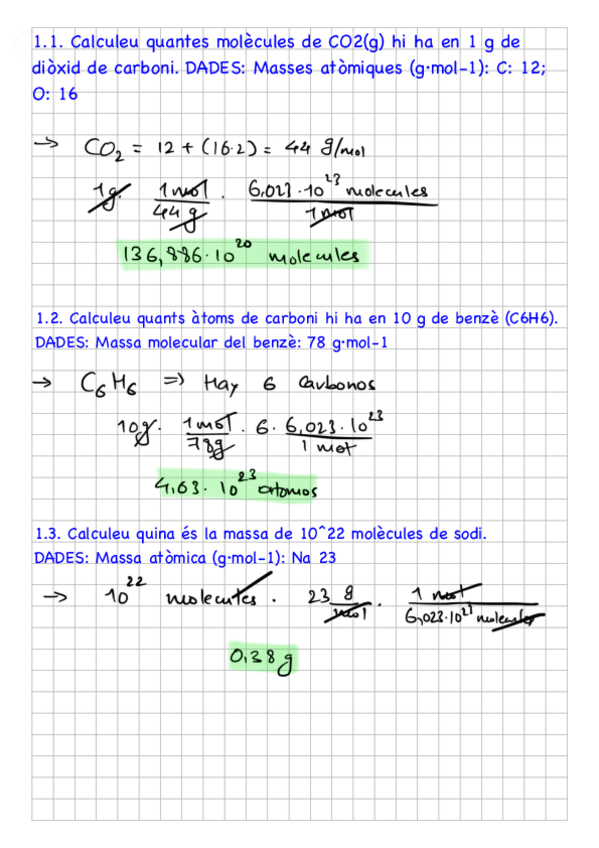 1.1. Calculeu quantes molècules de CO2(g) hi ha en 1 g de
diòxid de carboni. DADES: Masses atòmiques (g·mol-1): C: 12;
O: 16
→ CO₂ = 12 + (16·2) = 44 g/mol
1g. 1 mol / 44 g . 6,023·10²³ molecules / 1 mol
136,886·10²⁰ molecules
1.2. Calculeu quants àtoms de carboni hi ha en 10 g de benzè (C6H6).
DADES: Massa molecular del benzè: 78 g·mol-1
→ C₆H₆ => Hay 6 Carbonos
10g. 1 mol / 78g . 6. 6,023·10²³ / 1 mol
4,63·10²³ atomos
1.3. Calculeu quina és la massa de 10^22 molècules de sodi.
DADES: Massa atòmica (g·mol-1): Na 23
→ 10²² molecules. 23 g / mol . 1 mol / 6,023·10²³ molecules
0,38 g